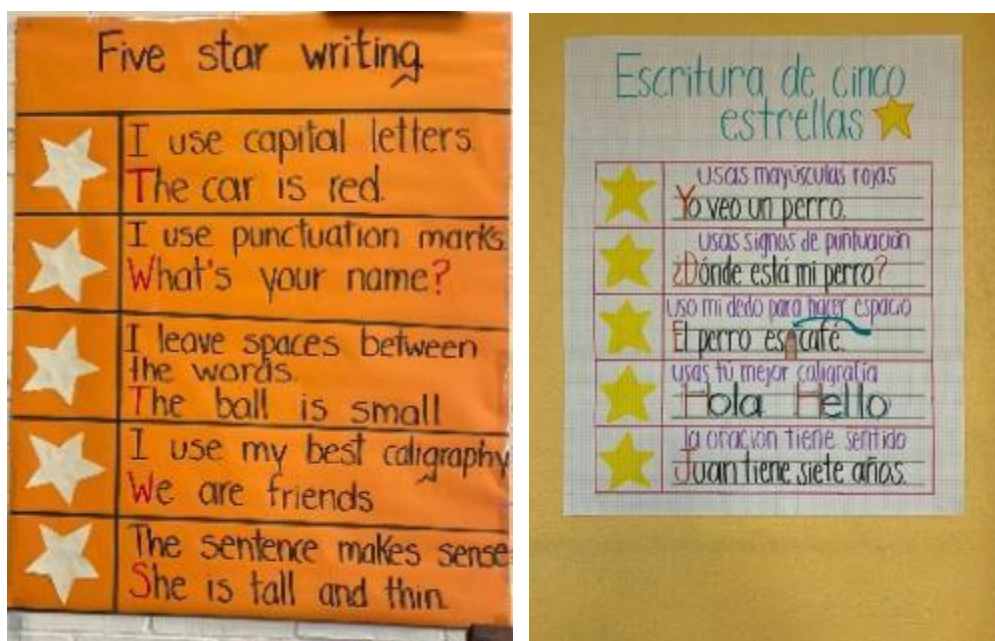 Five star writing
I use capital letters.
The car is red.
I use punctuation marks.
What's your name?
I leave spaces between
the words.
The ball is small
I use my best caligraphy
We are friends
The sentence makes sense
She is tall and thin.
Escritura de cinco
estrellas
usas mayúsculas rojas
Yo veo un perro.
usas signos de puntuación
¿Dónde está mi perro?
uso mi dedo para hacer espacio
El perro es café.
usas tú mejor caligrafía
Hola Hello
la oración tiene sentido
Juan tiene siete años.